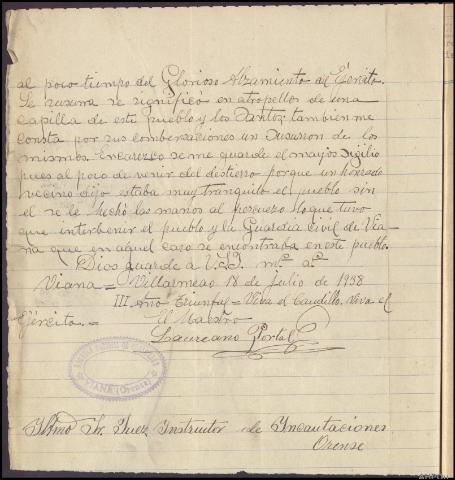 al poco tiempo del Glorioso Alzamiento del Ejército.
Se rumora se significó en atropellos de una
capilla de este pueblo y los Santos; tambien me
consta por sus combersaciones un de los
mismos Encarezco se me guarde el mayor sigilio
pues al poco de venir del destierro porque un honrado
vecino dijo estaba muy tranquilo el pueblo sin
el se le hechó las manos al pescuezo lo que tuvo
que interbenir el pueblo y la Guardia Civil de Via-
na que en aquel caso se encontraba en este pueblo.
Dios guarde a V.S.I. m.ª a.ª
Viana = Villarmeao 18 de julio de 1938
III Año Triunfal = Viva el Caudillo. Viva el
Ejército. =
El Maestro
Laureano Portal
VIANA (Orense)
Iltmo Sr. Juez Instructor de Incautaciones
Orense